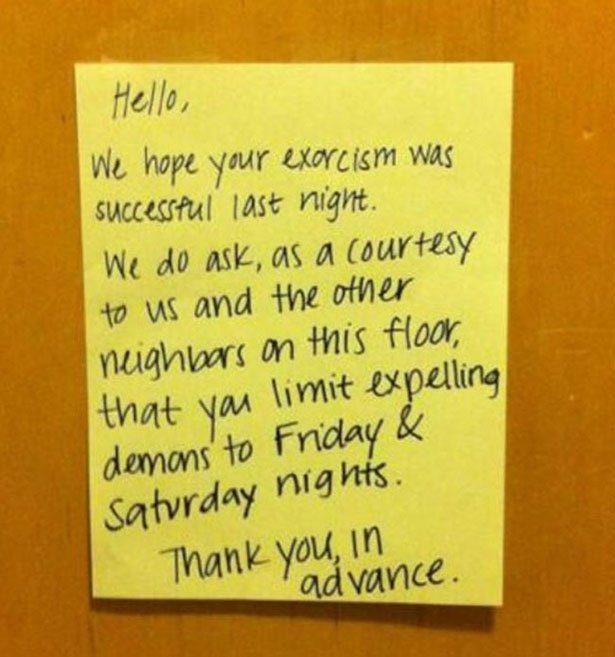 Hello,
We hope your exorcism was
successful last night.
We do ask, as a courtesy
to us and the other
neighbors on this floor,
that you limit expelling
demons to Friday &
Saturday nights.
Thank you, in
advance.